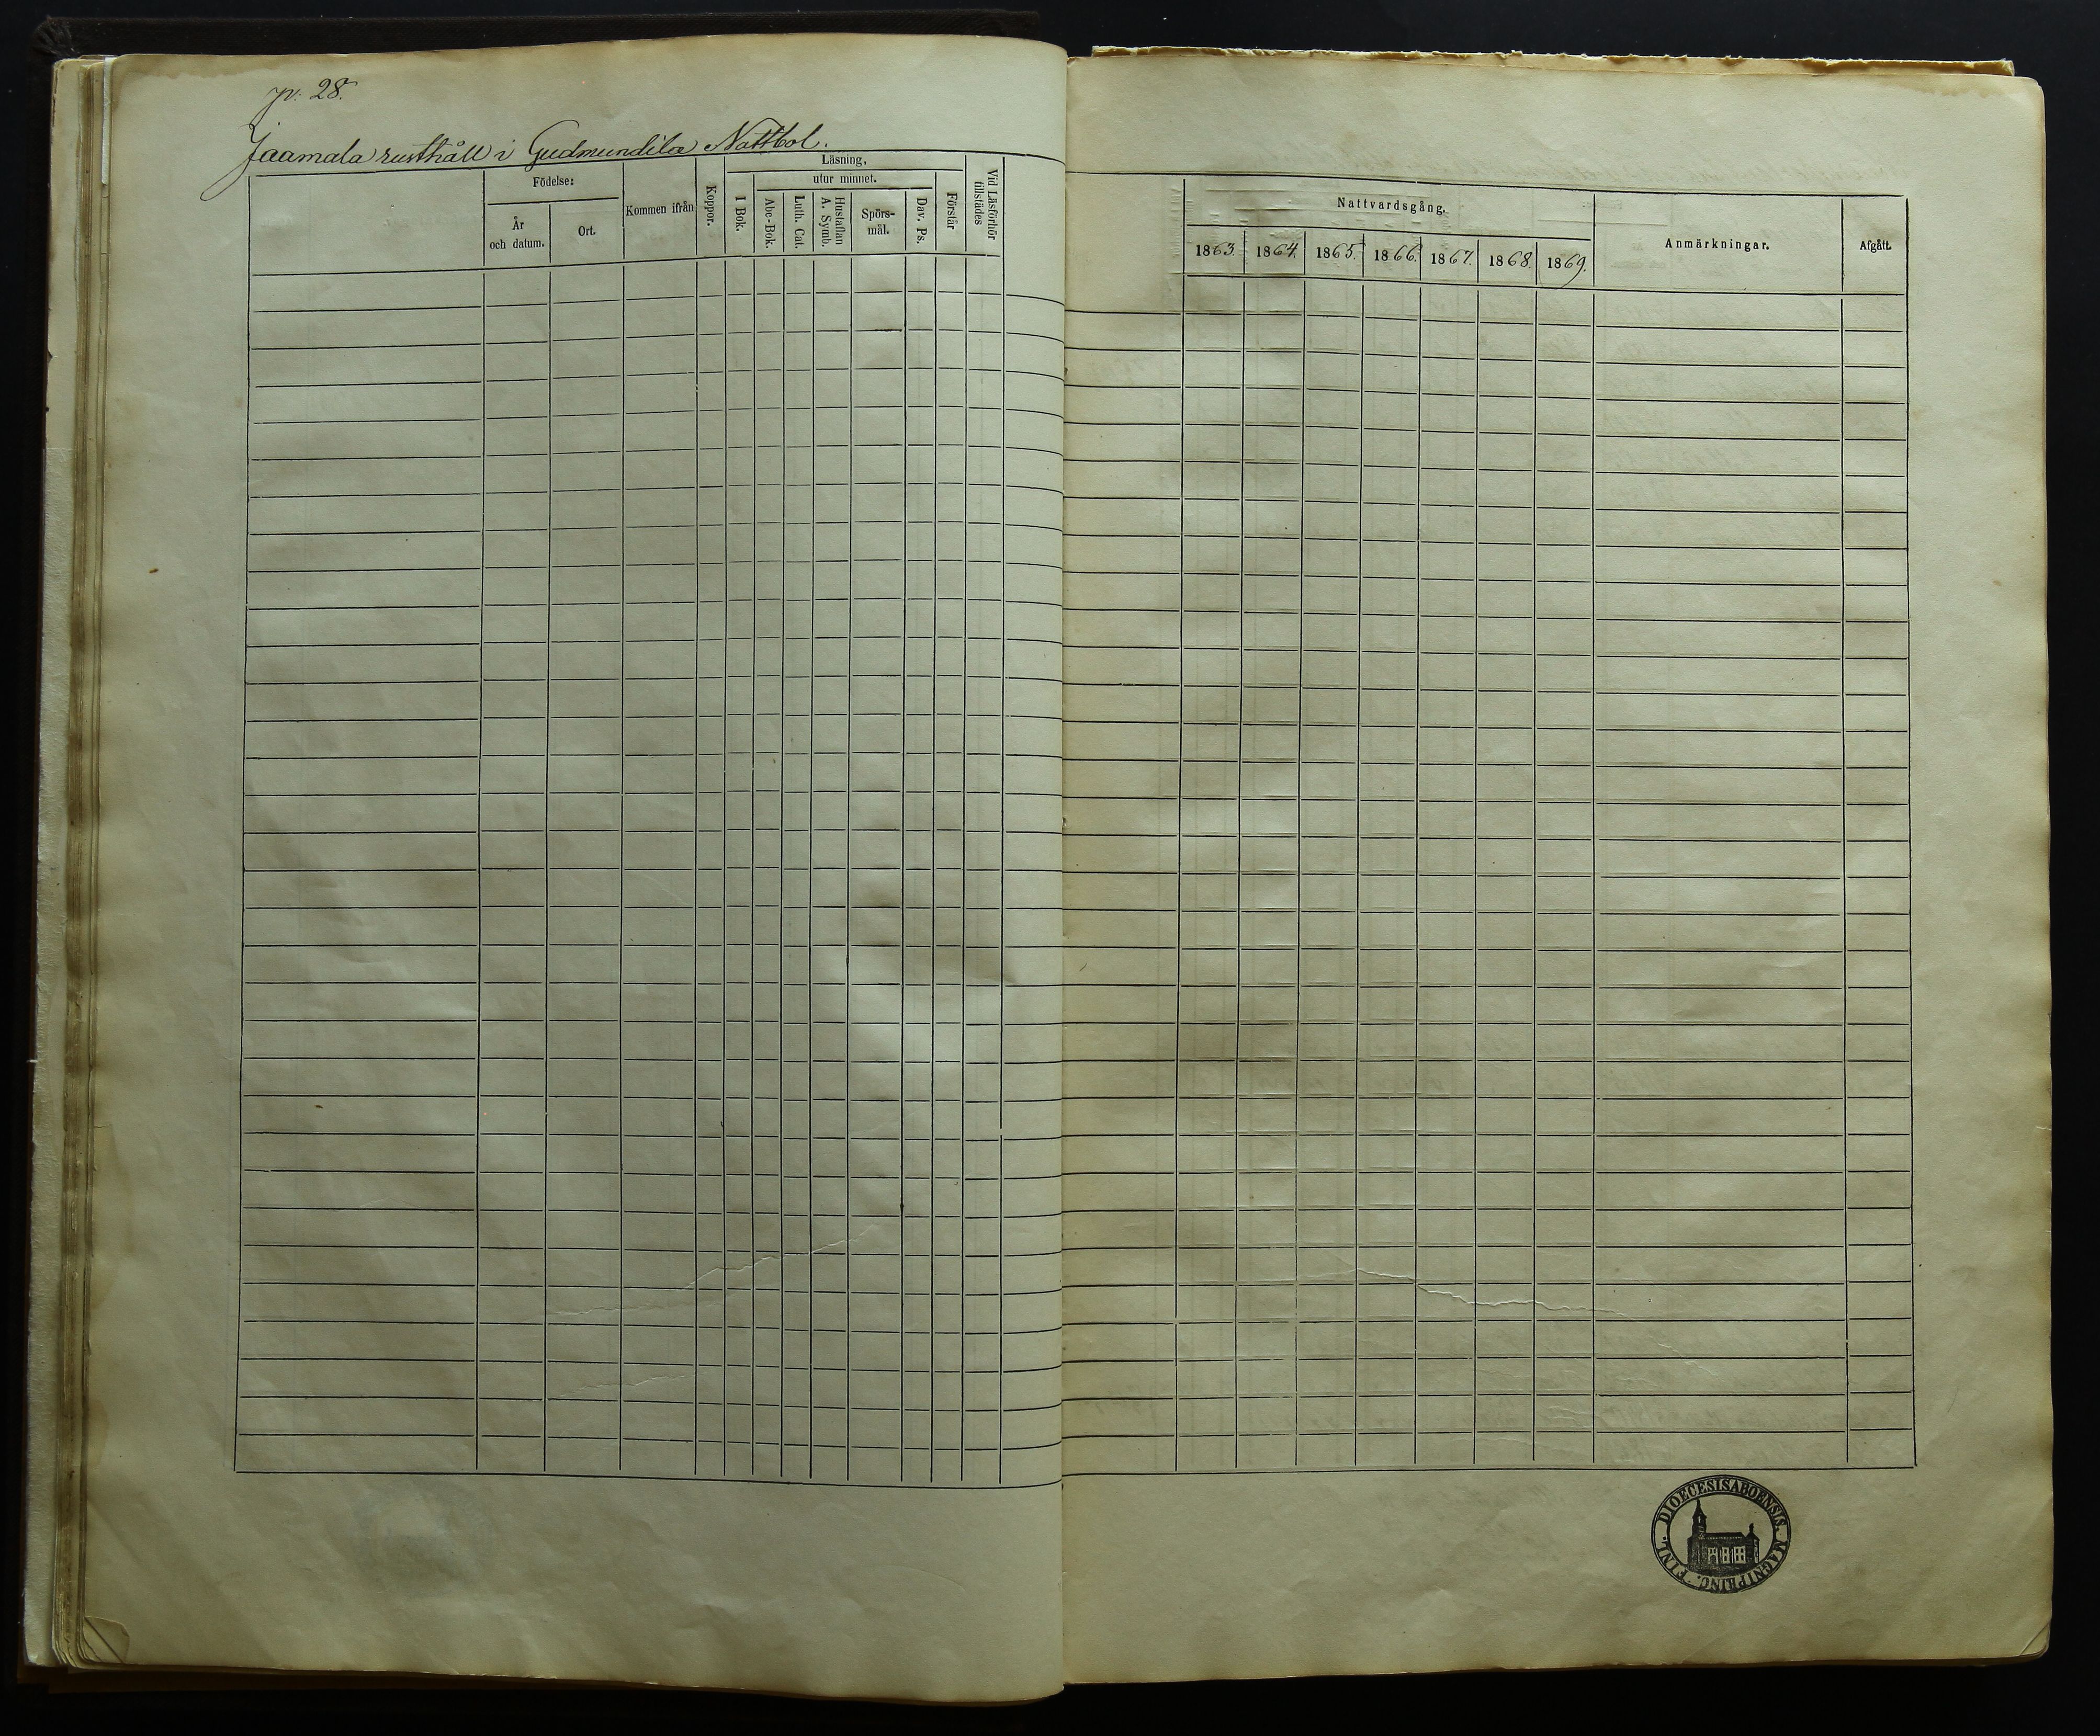 p: 28.
Jaamala rusthåll i Gudmundila Nattbol.
Födelse:
År
och datum.
Ort.
Kommen ifrån
Koppor.
Läsning,
I Bok.
utur minnet.
Abc-Bok.
Luth. Cat.
Hustaflan
A. Symb.
Spörs-
mål.
Dav. Ps.
Förstår
Vid Läsförhör
tillstädes
Nattvardsgång.
1863. 1864. 1865. 1866. 1867. 1868. 1869.
Anmärkningar.
Afgått.
DIOECESIS ABOENSIS. MAGNI PRINC. FINL.